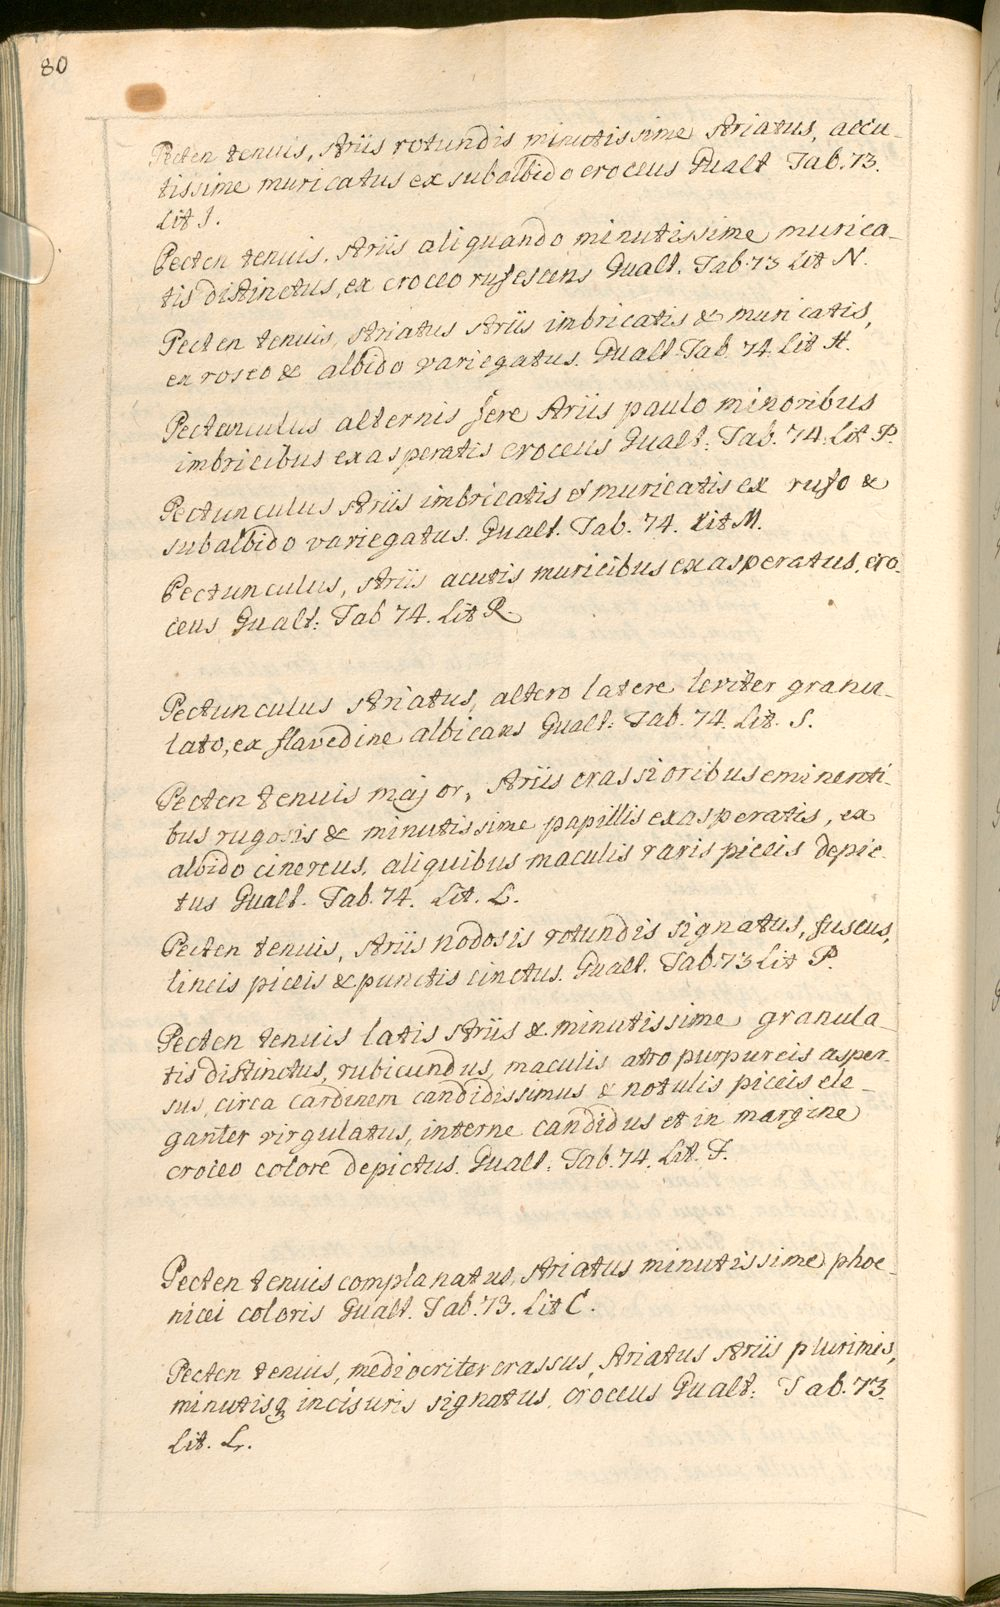 80
Pecten tenuis, striis rotundis minutissime striatus, accu-
tissime muricatus ex subalbido croceus Gualt Tab. 73.
Lit I.
Pecten tenuis, striis aliquando minutissime murica-
tis distinctus, ex croceo rufescens Gualt. Tab. 73 Lit N.
Pecten tenuis, striatus striis imbricatis & muricatis,
ex roseo & albido variegatus. Gualt. Tab. 74. Lit H.
Pectunculus alternis fere striis paulo minoribus
imbricibus exasperatis croceus Gualt: Tab. 74. Lit P.
Pectunculus striis imbricatis et muricatis ex rufo &
subalbido variegatus. Gualt. Tab. 74. Lit M.
Pectunculus, striis acutis muricibus exasperatus, cro-
ceus Gualt: Tab 74. Lit R.
Pectunculus striatus, altero latere leviter granu-
lato, ex flavedine albicans Gualt: Tab. 74. Lit. S.
Pecten tenuis major, striis crassioribus eminenti-
bus rugosis & minutissime papillis exasperatis, ex
albido cinereus, aliquibus maculis raris piceis depic-
tus Gualt. Tab. 74. Lit. L.
Pecten tenuis, striis nodosis rotundis signatus, fuscus,
lineis piceis & punctis cinctus. Gualt. Tab. 73 Lit P.
Pecten tenuis latis striis & minutissime granula-
tis distinctus, rubicundus, maculis atro purpureis asper-
sus, circa cardinem candidissimus & notulis piceis ele-
ganter virgulatus, interne candidus et in margine
croceo colore depictus. Gualt. Tab. 74. Lit. F.
Pecten tenuis complanatus, striatus minutissime phoe-
nicei coloris Gualt. Tab. 73. Lit C.
Pecten tenuis, mediocriter crassus, striatus striis plurimis,
minutisq incisuris signatus, croceus Gualt: Tab. 73.
Lit. L.